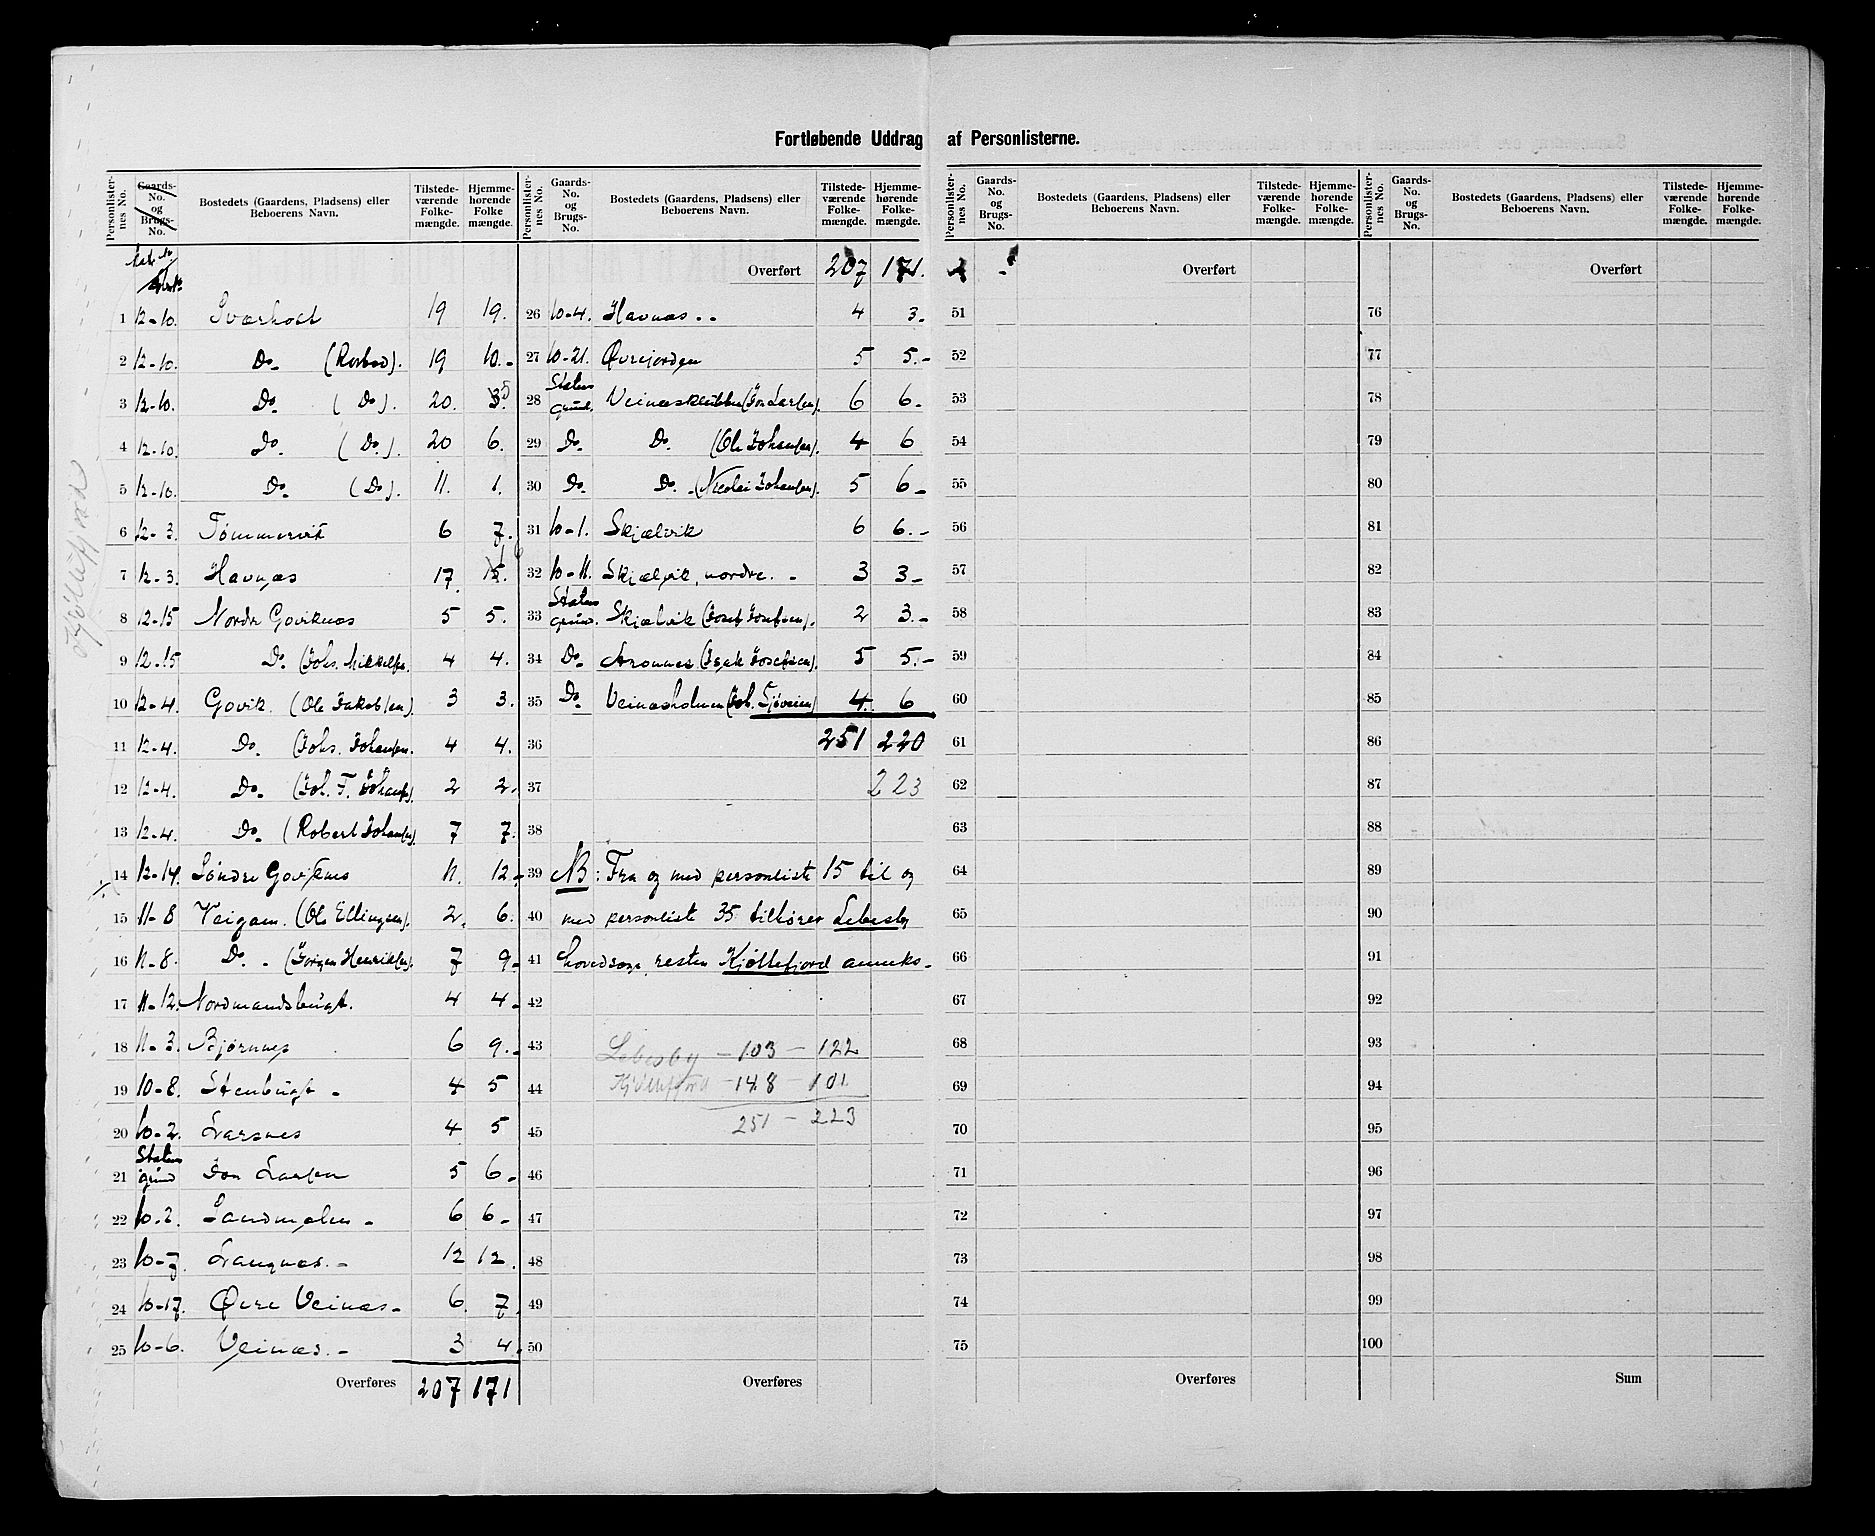 Fortløbende Uddrag af Personlisterne.
Personlister-nes No. Gaards-No. og Brugs-No. Bostedets (Gaardens, Pladsens) eller Beboerens Navn. Tilstede-værende Folke-mængde. Hjemme-hørende Folke mængde.
Kjøllefjord
1 12-10. Sværholt 19 19.
2 12-10. Do. (Rorbod). 19 10.-
3 12-10. Do. (Do). 20. 5
4 12-10. Do. (Do). 20 6.
5 12-10. Do. (Do). 11. 1.
6 12-3. Tømmervik 6 7.
7 12-3. Havnæs 17 16
8 12-15 Nordre Goviknæs 5 5.
9 12-15 Do. (Johs. Mikkelsen. 4 4.
10 12-4. Govik. (Ole Jakobsen). 3 3.
11 12-4. Do. (Johs. Johansen. 4 4.
12 12-4. Do. (Joh. F. Johansen). 2 2.
13 12-4. Do. (Robert Johansen). 7 7.
14 12-14. Søndre Goviknes 11. 12.
15 11-8 Veigam. (Ole Ellingsen). 2. 6.
16 11-8. Do. - (Jørgen Henriksen). 7 9.
17 11-12. Nordmandsbugt. 4 4.
18 11-3. Bjørnnes 6 9.
19 10-8. Stenbugt - 4 5
20 10-2. Larsnes 4 5
21 Statens grund Jon Larsen 5 6.
22 10-2. Sandmolen - 6 6-
23 10-7. Langnæs. - 12 12.
24 10-17. Øvre Veinæs- 6. 7.
25 10-6. Veinæs. - 3 4.
Overføres 207 171
Personlister-nes No. Gaards-No. og Brugs-No. Bostedets (Gaardens, Pladsens) eller Beboerens Navn. Tilstede-værende Folke-mængde. Hjemme-hørende Folke-mængde.
Overført 207 171.
26 10-4. Havnæs -- 4 3-
27 10-21. Øvrejorden 5 5.-
28 Statens grund. Veinæsklubben (Jon Larsen). 6 6-
29 Do. Do. (Ole Johansen). 4 6
30 Do. Do. - (Nicolai Johansen). 5 6-
31 10-1. Skjælvik 6 6.-
32 10-11. Skjælvik, nordre. - 3 3-
33 Statens grund. Skjælvik (Josef Josefsen). 2 3.-
34 Do. Aronnes (Isak Josefsen). 5 5.-
35 Do. Veinæsholmen (Joh. Sjøveien) 4. 6
36 251 220
37 223
38
39 NB: Fra og med personliste 15 til og
40 med personliste 35 tilhører Lebesby
41 hovedsogn, resten Kjøllefjord anneks-
42
43 Lebesby - 103 - 122
44 Kjøllefjord - 148 - 101.
45 251 - 223
46
47
48
49
50
Overføres
Personlister-nes No. Gaards-No. og Brugs-No. Bostedets (Gaardens, Pladsens) eller Beboerens Navn. Tilstede-værende Folke-mængde. Hjemme-hørende Folke-mængde.
Overført
51
52
53
54
55
56
57
58
59
60
61
62
63
64
65
66
67
68
69
70
71
72
73
74
75
Overføres
Personlister-nes No. Gaards-No. og Brugs-No. Bostedets (Gaardens, Pladsens) eller Beboerens Navn. Tilstede-værende Folke-mængde. Hjemme-hørende Folke-mængde.
Overført
76
77
78
79
80
81
82
83
84
85
86
87
88
89
90
91
92
93
94
95
96
97
98
99
100
Sum